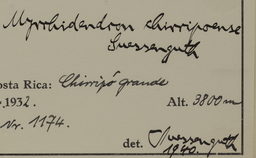 Myrrhidendron chirripoense
Suessenguth
osta Rica: Chirripó grande
.1932. Alt. 3800 m
Nr. 1174.
det. Suessenguth
1940.